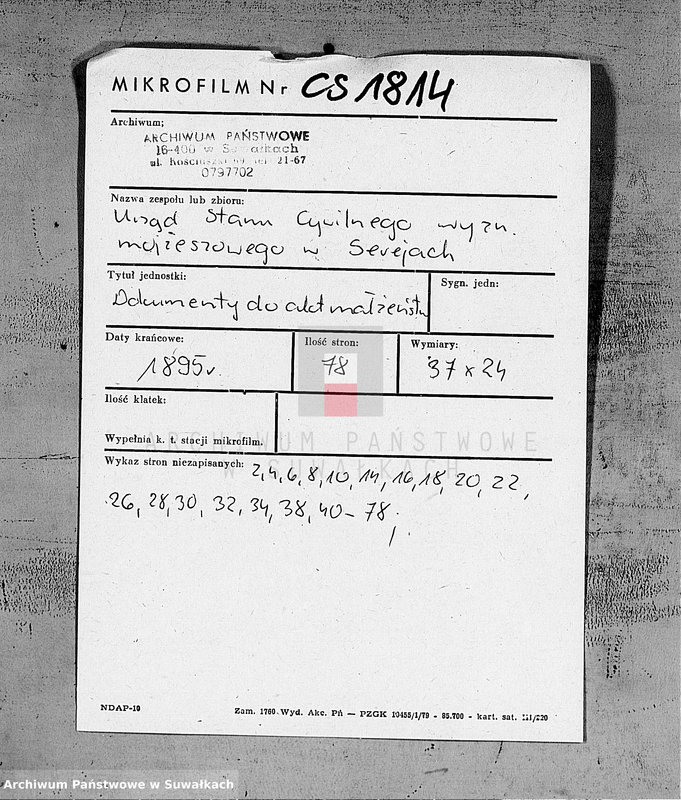 MIKROFILM Nr CS 1814
Archiwum:
ARCHIWUM PAŃSTWOWE
16-400 w Suwałkach
ul. Kościuszki 69 tel 21-67
0797702
Nazwa zespołu lub zbioru:
Urząd Stanu Cywilnego wyzn.
mojżeszowego w Serejach
Tytuł jednostki:
Dokumenty do akt małżeństw
Sygn. jedn:
Daty krańcowe:
1895r.
Ilość stron:
78
Wymiary:
37 x 24
Ilość klatek:
Wypełnia k. t. stacji mikrofilm.
ARCHIWUM PAŃSTWOWE
W SUWAŁKACH
Wykaz stron niezapisanych: 2,4,6,8,10,14,16,18,20,22,
26, 28,30, 32, 34, 38, 40-78.
NDAP-10
Zam. 1760 Wyd. Akc. Pń — PZGK 10455/1/79 - 85.700 - kart. sat. III/220
Archiwum Państwowe w Suwałkach